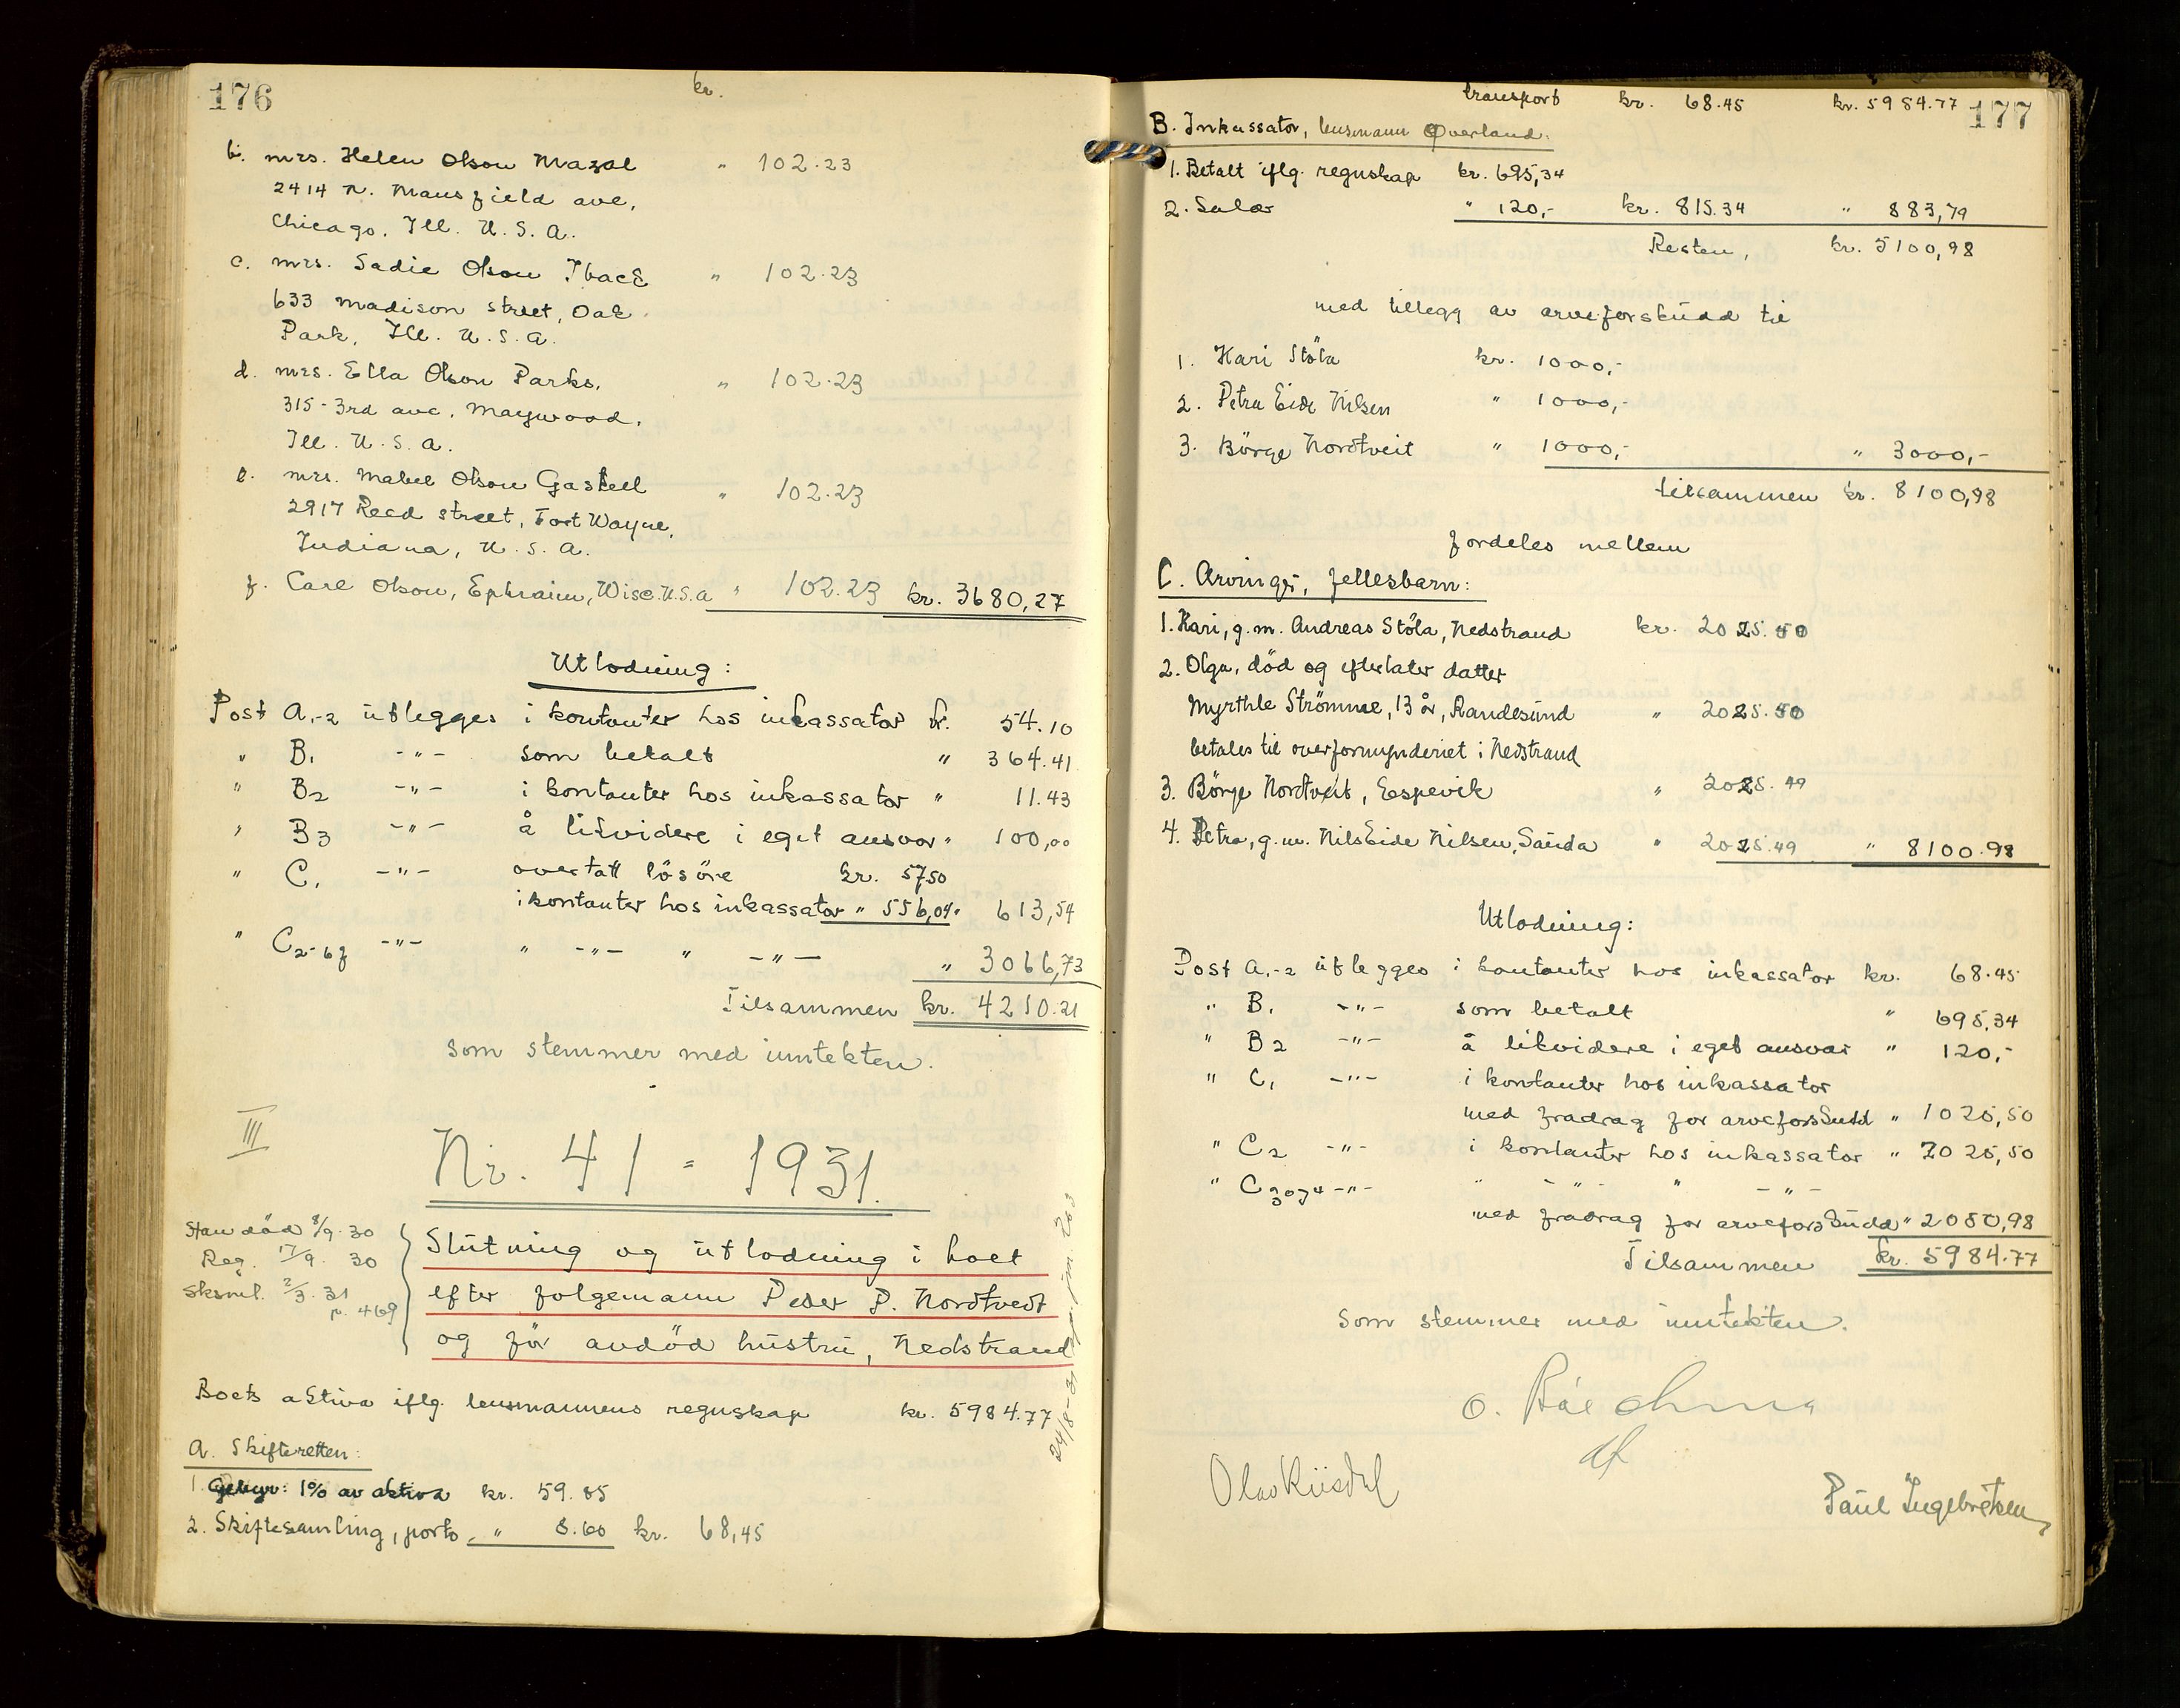 176
kr.
b. mrs. Helen Olson Mazal " 102.23
2414 N. Mansfield ave,
Chicago, Ill. U.S.A.
c. mrs. Sadie Olson Iback " 102.23
633 Madison street, Oak
Park, Ill. U.S.A.
d. mrs. Etta Olson Parks, " 102.23
315-3rd ave, Maywood,
Ill. U.S.A.
e. mrs. Mabel Olson Gaskell " 102.23
2917 Reed street, Fort Wayne,
Indiana, U.S.A.
f. Carl Olson, Ephraim, Wisc. U.S.a " 102.23 kr. 3680,27
Utlodning:
Post A,-2 utlegges i kontanter hos inkassator kr. 54.10
" B1 -"- som betalt " 364.41
" B2 -"- i kontanter hos inkassator " 11.43
" B3 -"- å likvidere i eget ansvar " 100,00
" C1 -"- overtatt lösöre kr. 57.50
i kontanter hos inkassator " 556,04 " 613,54
" C2-6f -"- " -"- " -"- " 3066,73
Tilsammen kr. 4210.21
som stemmer med inntekten.
III
Nr. 41 = 1931.
Han död 8/9.30
Reg. 17/9. 30
Sksml. 2/3.31
p. 469
Slutning og utlodning i boet
efter folgemann Peder P. Nordtvedt
og för avdöd hustru, Nedstrand
Boets aktiva iflg. lensmannens regnskap kr. 5984.77
A. Skifteretten:
1. Gebyr: 1% av aktiva kr. 59.85
2. Skiftesamling, porto, " 8.60 kr. 68,45
177
transport kr. 68.45 kr. 5984.77
B. Inkassator, lensmann Øverland:
1. Betalt iflg. regnskap kr. 695,34
2. Salær " 120,- kr. 815.34 " 883,79
Resten, kr. 5100,98
med tillegg av arveforskudd til
1. Kari Stöla kr. 1000,-
2. Petra Eide Nilsen " 1000,-
3. Börge Nordtveit " 1000,- " 3000,-
tilsammen kr. 8100,98
fordeles mellem
C. Arvinger, fellesbarn:
1. Kari, g.m. Andreas Stöla, Nedstrand kr. 2025.50
2. Olga, död og efterlater datter
Myrthle Strömme, 13 år, Randesund " 2025.50
betales til overformynderiet i Nedstrand
3. Börge Nordtveit, Espevik " 2025.49
4. Petra, g.m. Nils Eide Nilsen, Sauda " 2025.49 " 8100.98
Utlodning:
Post A,-2 utlegges i kontanter hos inkassator kr. 68.45
" B1 -"- som betalt " 695,34
" B2 -"- å likvidere i eget ansvar " 120,-
" C1 -"- i kontanter hos inkassator
med fradrag for arveforskudd " 1025,50
" C2 -"- i kontanter hos inkassator " 2025,50
" C3og4 -"- " -"- " -"-
med fradrag for arveforskudd " 2050,98
Tilsammen kr. 5984.77
som stemmer med inntekten.
Paul Ingebretsen